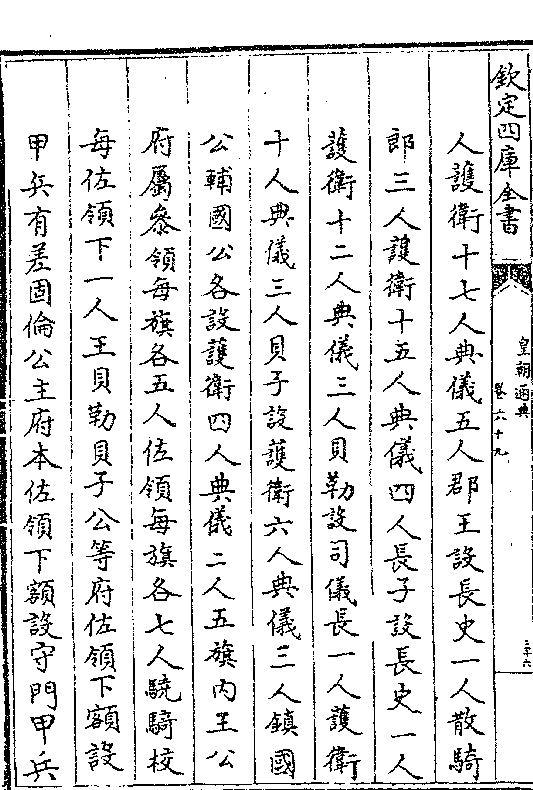 欽定四庫全書
皇朝通典
卷六十九
三十六
人護衛十七人典儀五人郡王設長史一人散騎
郎三人護衛十五人典儀四人長子設長史一人
護衛十二人典儀三人貝勒設司儀長一人護衛
十人典儀三人貝子設護衛六人典儀三人鎮國
公輔國公各設護衛四人典儀二人五旗內王公
府屬叅領每旗各五人佐領每旗各七人驍騎校
每佐領下一人王貝勒貝子公等府佐領下額設
甲兵有差固倫公主府本佐領下額設守門甲兵